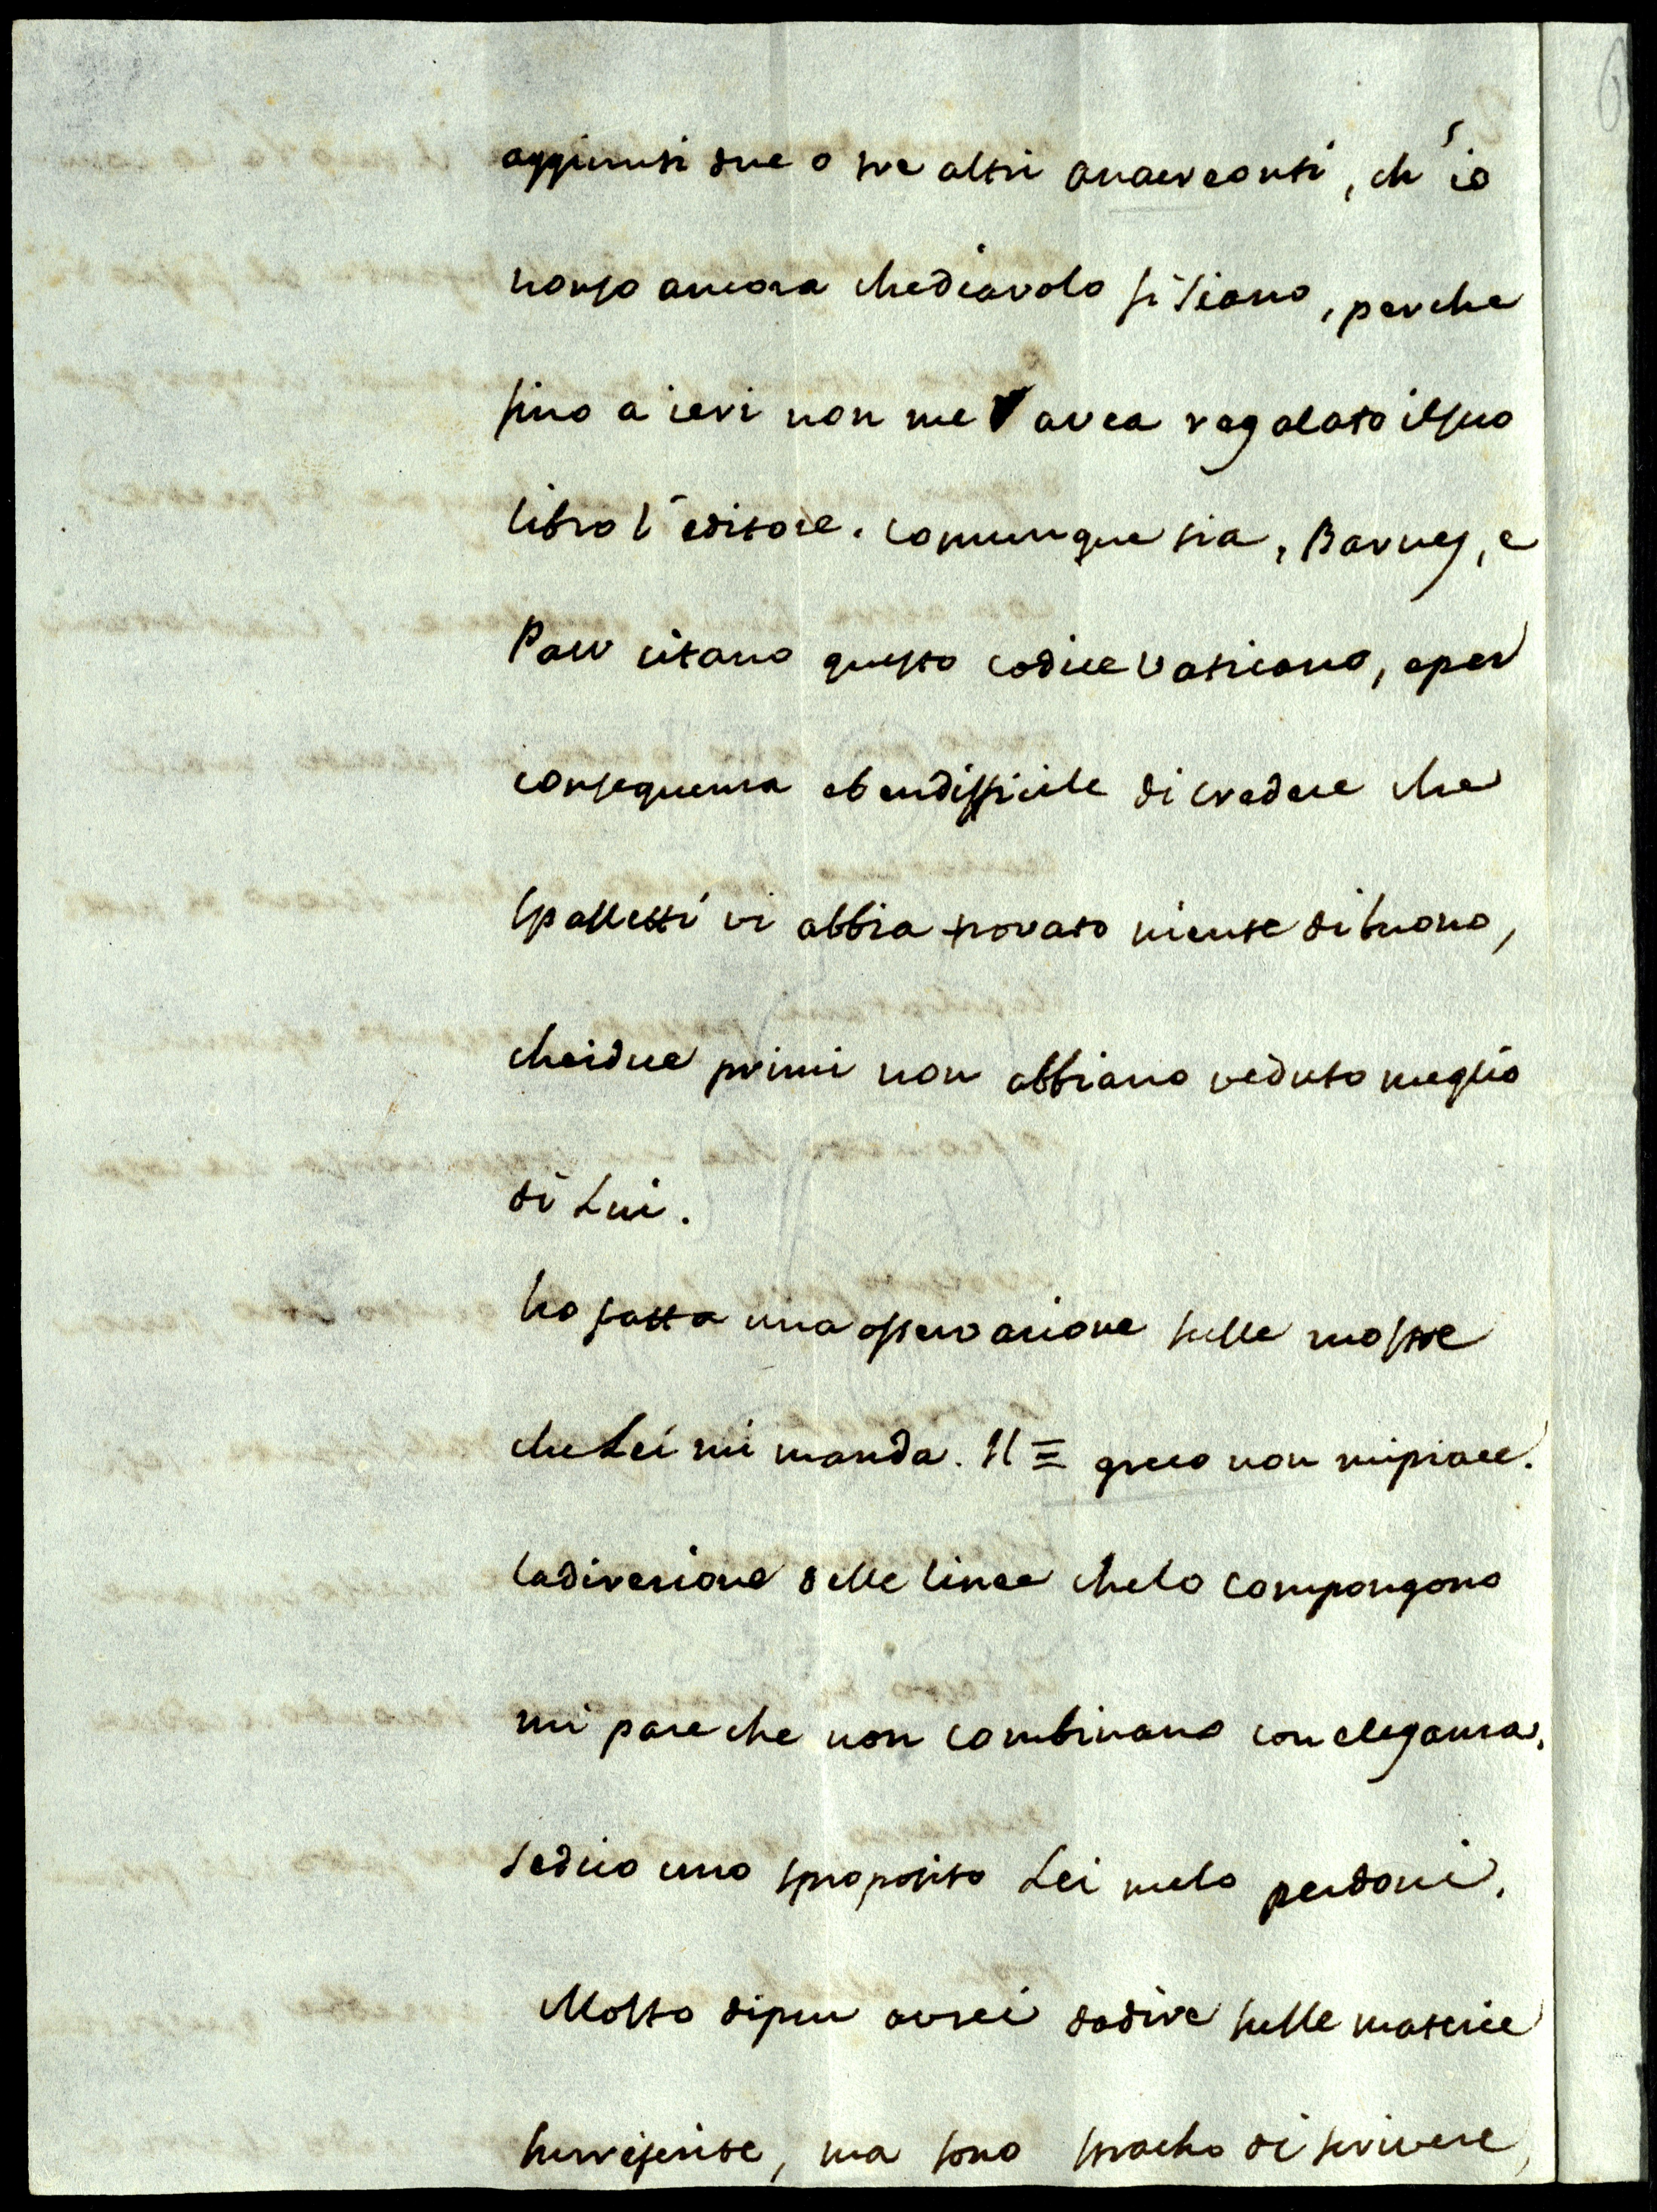 aggiunti due o tre altri anacreonti, ch'io
nonso ancora chediavolo si siano, perche
fino a ieri non me avea regalato ilsuo
libro l'editore. comunque sia, Barnes, e
Paw citano questo codice Vaticano, eper
consequenza ebendifficile di credere che
Spalletti vi abbia trovato niente dibuono,
cheidue primi non abbiano veduto meglio
di Lui.
ho fatta una osservazione sulle mostre
che Lei mi manda. Il Ξ greco non mipiace.
ladirezione delle linee chelo compongono
mi pare che non combinano con eleganza.
sedico uno sproposito Lei melo perdoni.
Molto dipiu avrei dadire sulle materie
surriferite, ma sono stracho di scrivere,